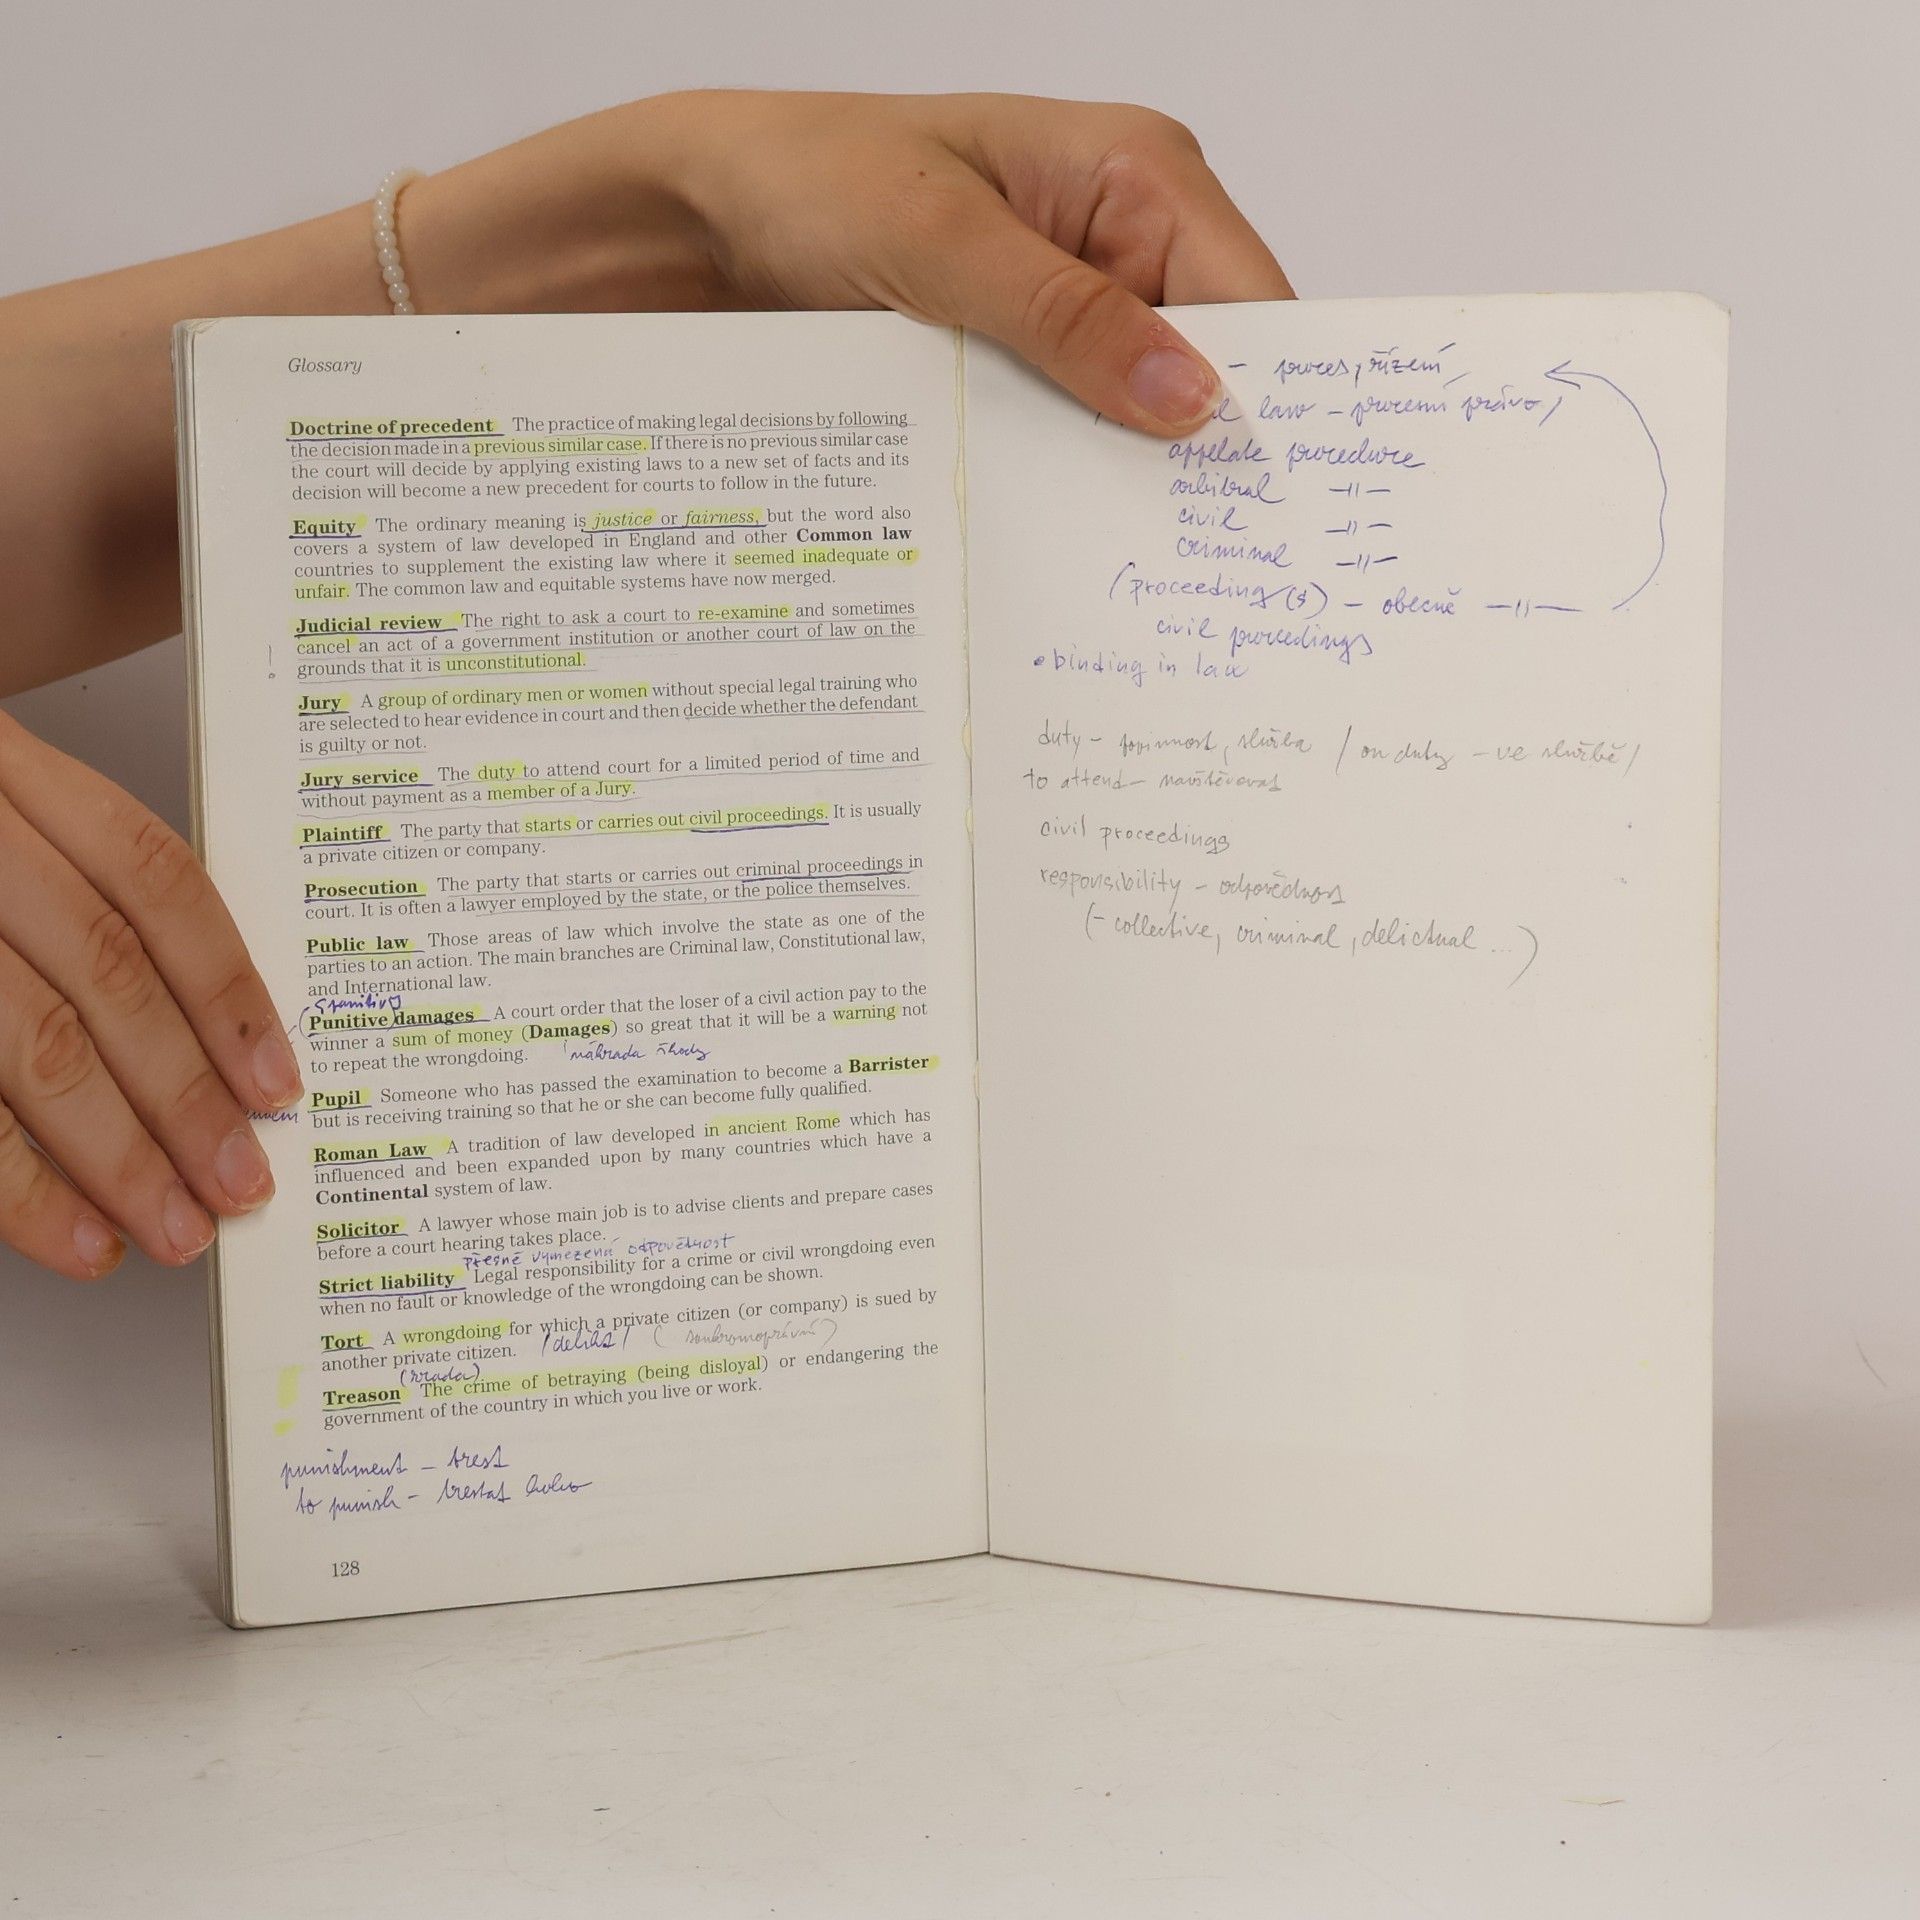 Glossary
Doctrine of precedent The practice of making legal decisions by following
the decision made in a previous similar case. If there is no previous similar case
the court will decide by applying existing laws to a new set of facts and its
decision will become a new precedent for courts to follow in the future.
Equity The ordinary meaning is justice or fairness, but the word also
covers a system of law developed in England and other Common law
countries to supplement the existing law where it seemed inadequate or
unfair. The common law and equitable systems have now merged.
Judicial review The right to ask a court to re-examine and sometimes
cancel an act of a government institution or another court of law on the
! grounds that it is unconstitutional.
Jury A group of ordinary men or women without special legal training who
are selected to hear evidence in court and then decide whether the defendant
is guilty or not.
Jury service The duty to attend court for a limited period of time and
without payment as a member of a Jury.
Plaintiff The party that starts or carries out civil proceedings. It is usually
a private citizen or company.
Prosecution The party that starts or carries out criminal proceedings in
court. It is often a lawyer employed by the state, or the police themselves.
Public law Those areas of law which involve the state as one of the
parties to an action. The main branches are Criminal law, Constitutional law,
and International law.
Punitive damages A court order that the loser of a civil action pay to the
winner a sum of money (Damages) so great that it will be a warning not
to repeat the wrongdoing. náhrada škody
Pupil Someone who has passed the examination to become a Barrister
but is receiving training so that he or she can become fully qualified.
Roman Law A tradition of law developed in ancient Rome which has
influenced and been expanded upon by many countries which have a
Continental system of law.
Solicitor A lawyer whose main job is to advise clients and prepare cases
before a court hearing takes place.
přesně vymezená odpovědnost
Strict liability Legal responsibility for a crime or civil wrongdoing even
when no fault or knowledge of the wrongdoing can be shown.
Tort A wrongdoing for which a private citizen (or company) is sued by
another private citizen. /delikt/ (soukromoprávní)
(zrada)
Treason The crime of betraying (being disloyal) or endangering the
! government of the country in which you live or work.
punishment – trest
to punish – trestat koho
128
– proces, řízení
law – procesní právo/
appelate procedure
arbitral –"–
civil –"–
criminal –"–
(proceeding(s) – obecně –"–
civil procedings
• binding in law
duty – povinnost, služba / on duty – ve službě/
to attend – navštěvovat
civil proceedings
responsibility – odpovědnost
(– collective, criminal, delictual ...)